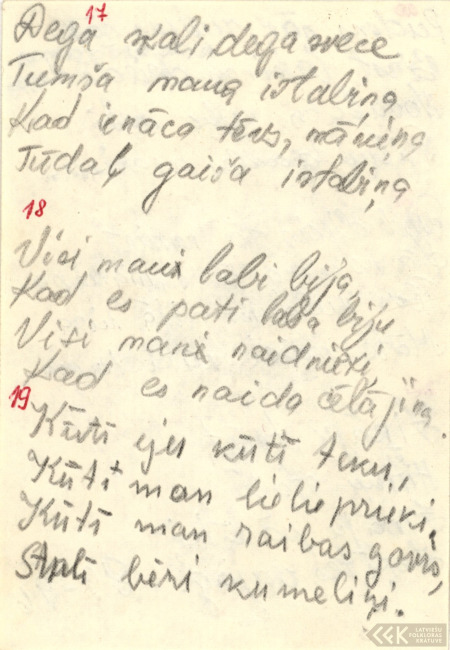 17
Dega skali dega svece
Tumša mana istabiņa
Kad ienāca tēvs, māmiņa
Tūdaļ gaiša istabiņa
18
Visi mani labi bija,
Kad es pati laba biju
Visi mani naidnieki
Kad es naida cēlājiņa.
19
Kūtī eju kūtī teku,
Kūtī man lielie prieki,
Kūtī man raibas govis,
Stallī bēri kumeliņi.
LATVIEŠU
FOLKLORAS
KRĀTUVE